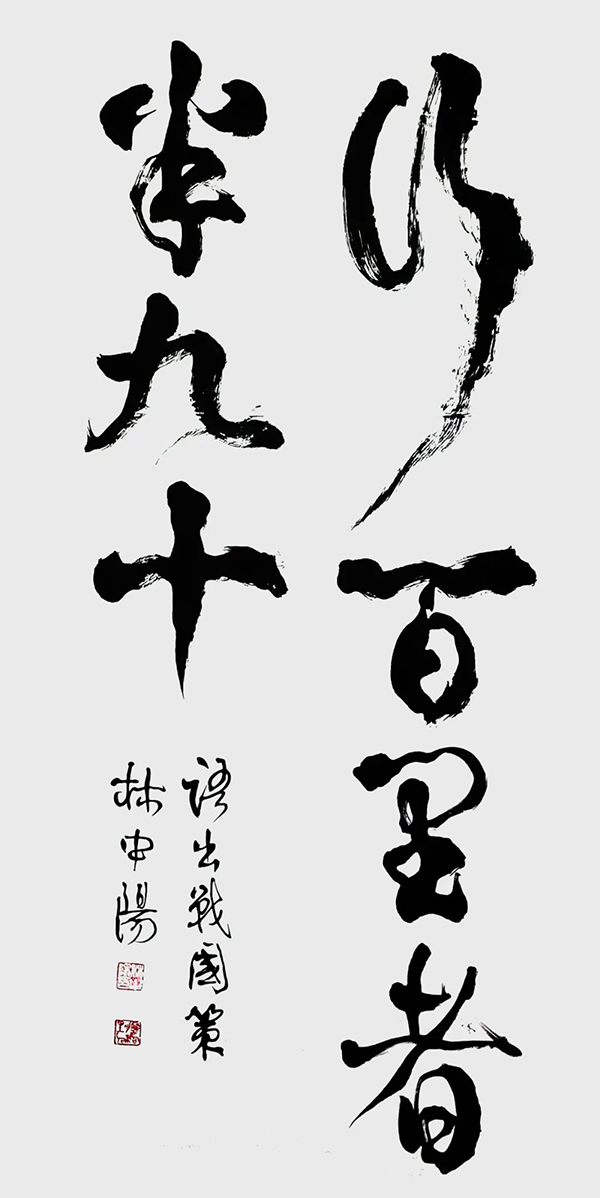 行百里者
半九十
語出戰國策
林中陽